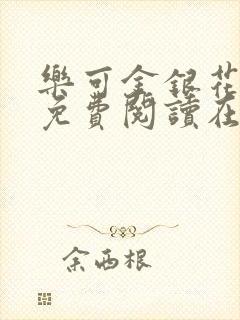 樂可金銀花
免費閱讀在
余西根